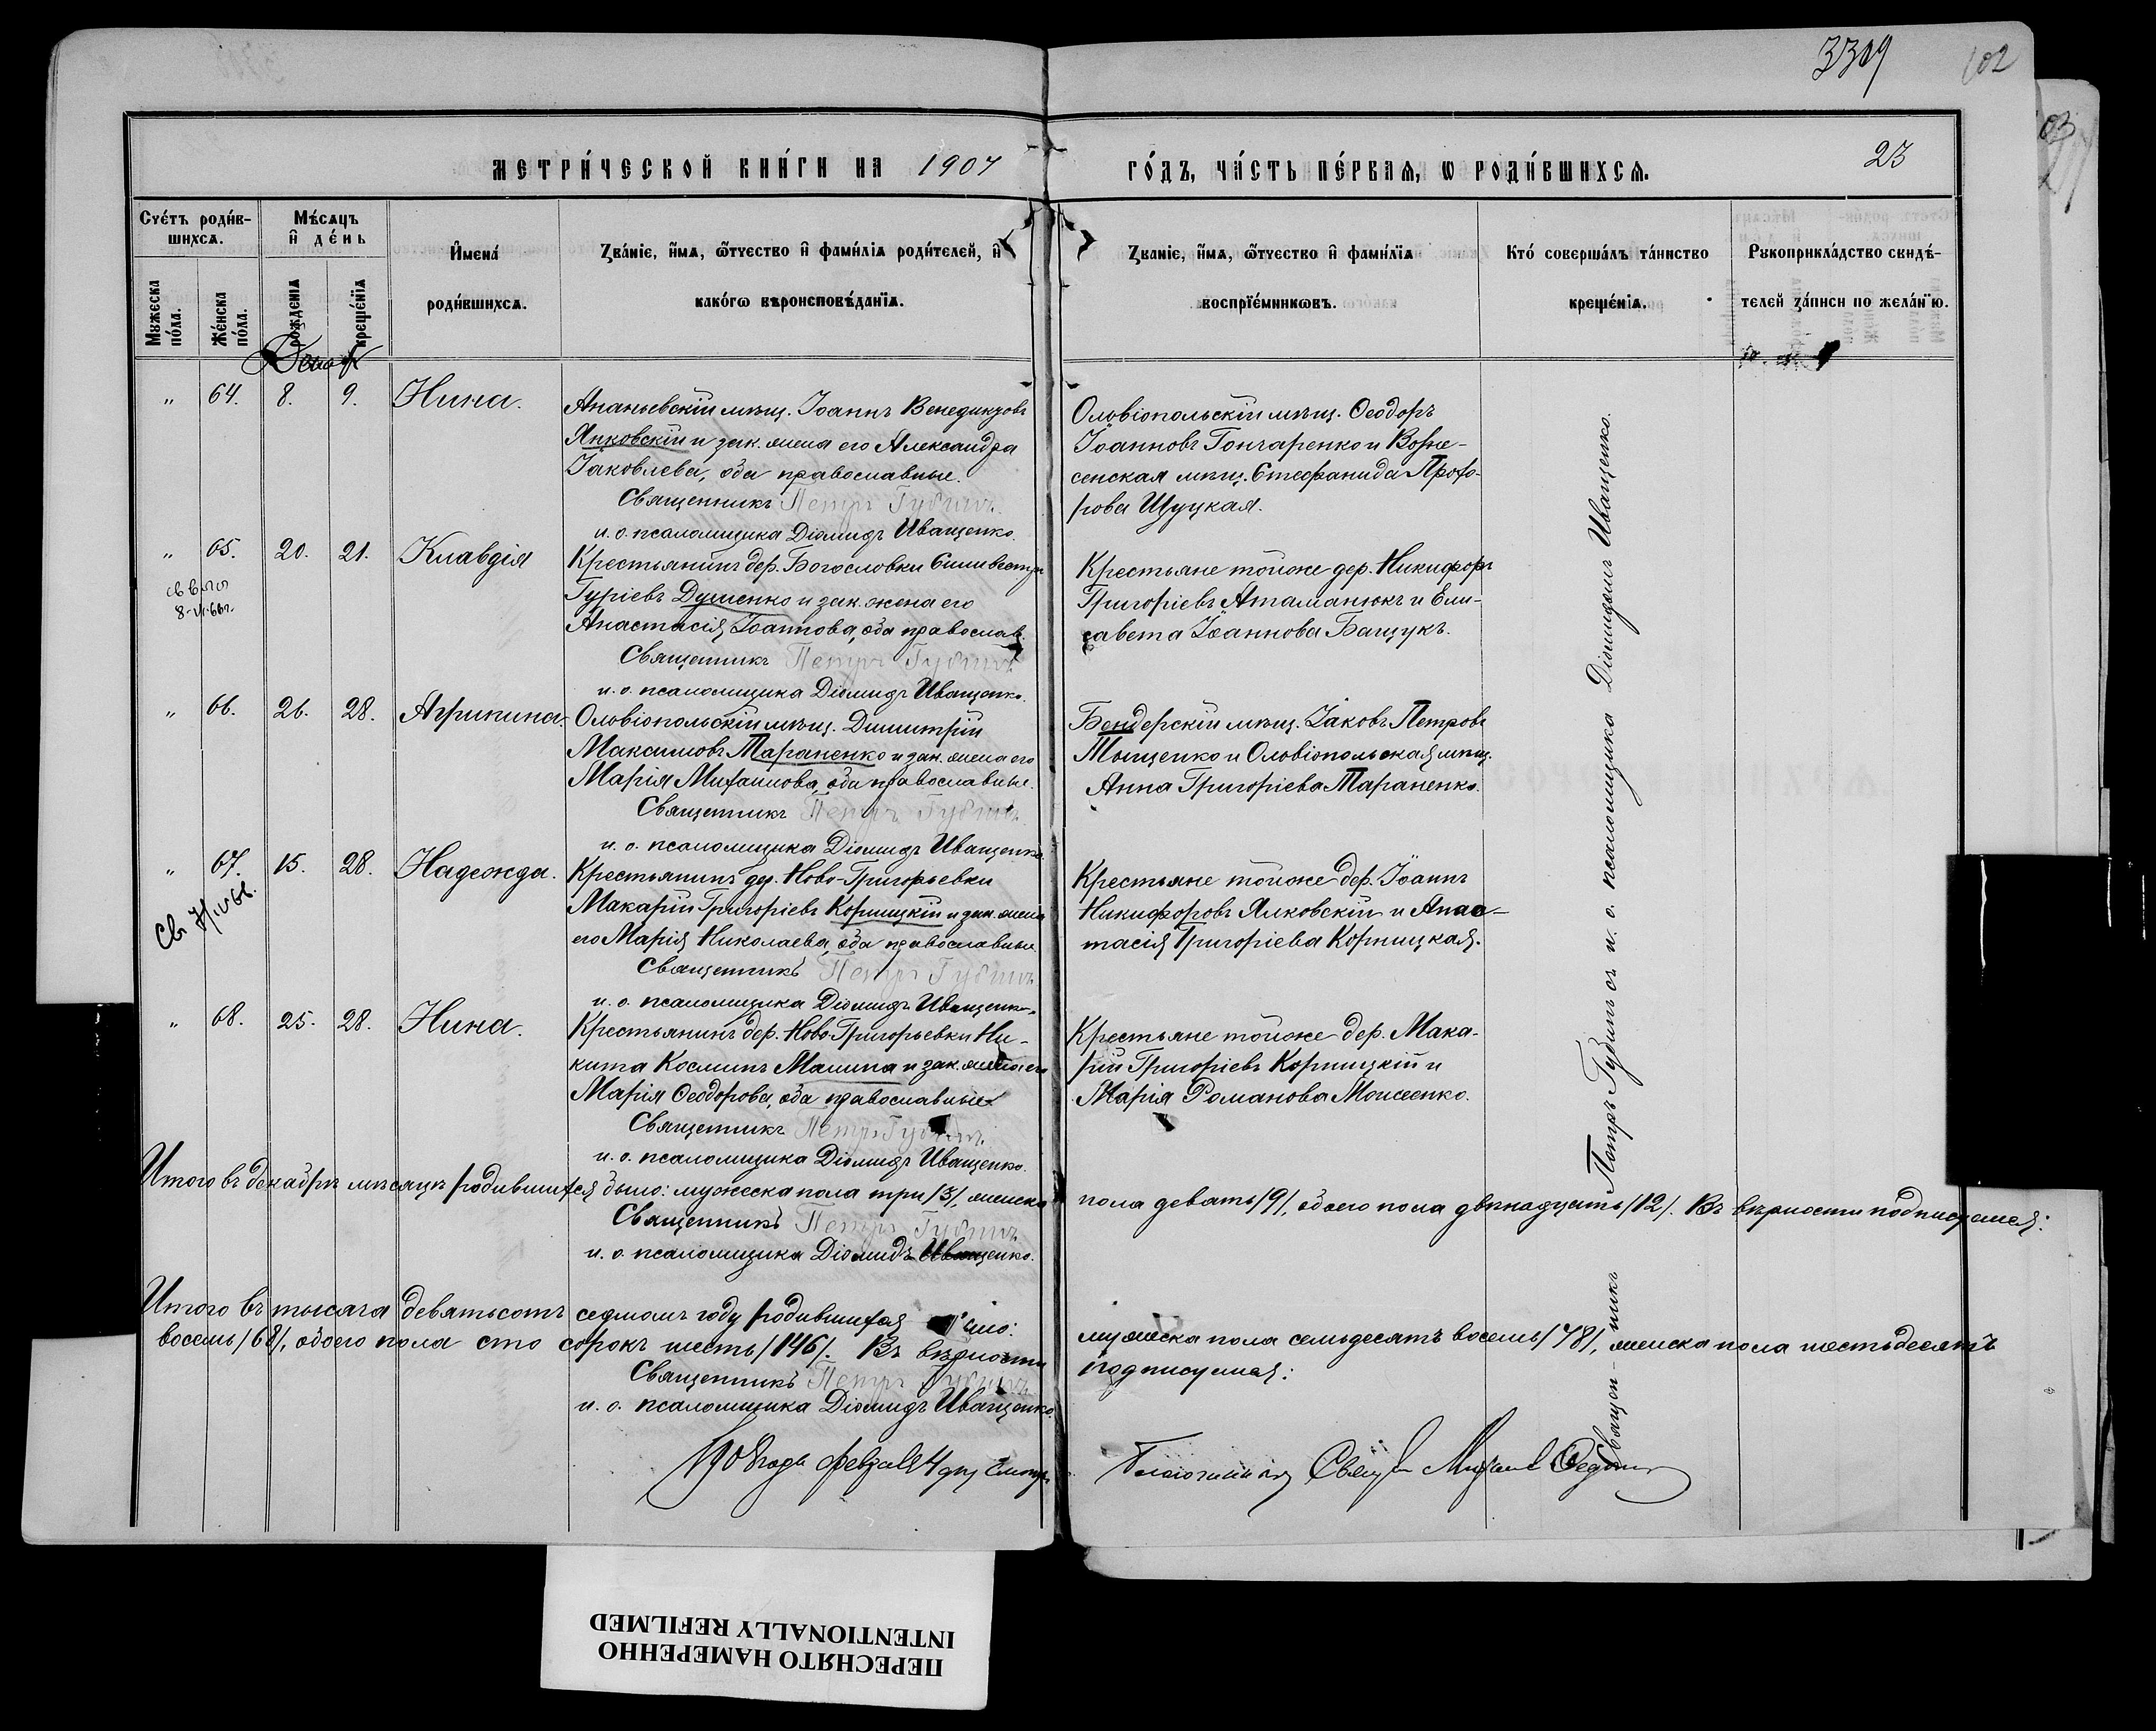 3309
102
МЕТРИ́ЧЕСКОЙ КНИ́ГИ НА 1907 ГО́ДЪ, ЧА́СТЬ ПЕ́РВАЯ, Ѡ РОДИ́ВШИХСЯ.
23
Счє́тъ роди́в-
шихсѧ.
Мѣ́сѧцъ
и҆ де́нь
И҆мена̀
роди́вшихсѧ.
Мꙋжеска
по́ла.
Же́нска
по́ла.
рожденїѧ
креще́нїѧ
Зва́нїе, и҆́мѧ, ѻ҆́тчество и҆ фамі́лїѧ роди́телей, и҆
како́гѡ вѣроисповѣ́данїѧ.
Зва́нїе, и҆́мѧ, ѻ҆́тчество и҆ фамі́лїѧ
воспрїе́мниковъ.
Кто̀ соверша́лъ та́инство
креще́нїѧ.
Рꙋкоприкла́дство свидѣ́-
телей за́писи по жела́нїю.
" 64. 8. 9. Нина.
Ананьевскій мѣщ. Іоаннъ Венедиктовъ
Янковскій и зак. жена его Александра
Іаковлева, оба православные.
Священникъ Петръ Губинъ
и. о. псаломщика Діомидъ Иващенко.
Ольвіопольскій мѣщ. Ѳеодоръ
Іоанновъ Гончаренко и Возне-
сенская мѣщ. Стефанида Прохо-
рова Щуцкая.
" 65. 20. 21. Клавдія
8-VI-66г.
Крестьянинъ дер. Богословки Силивестръ
Гуріевъ Душенко и зак. жена его
Анастасія Іоаннова, оба православ.
Священникъ Петръ Губинъ
и. о. псаломщика Діомидъ Иващенко.
Крестьяне тойже дер. Никифоръ
Григоріевъ Атаманюкъ и Ели-
савета Іоаннова Бащукъ.
" 66. 26. 28. Агрипина.
Ольвіопольскій мѣщ. Димитрій
Максимовъ Тараненко и зак. жена его
Марія Михаилова, оба православные.
Священникъ Петръ Губинъ
и. о. псаломщика Діомидъ Иващенко.
Бендерскій мѣщ. Іаковъ Петровъ
Тыщенко и Ольвіопольская мѣщ.
Анна Григоріева Тараненко.
" 67. 15. 28. Надежда.
Крестьянинъ дер. Ново-Григорьевки
Макарій Григоріевъ Корницкій и зак. жена
его Марія Николаева, оба православные
Священникъ Петръ Губинъ
и. о. псаломщика Діомидъ Иващенко.
Крестьяне тойже дер. Іоаннъ
Никифоровъ Ялковскій и Анас-
тасія Григоріева Корницкая.
" 68. 25. 28. Нина.
Крестьянинъ дер. Ново-Григорьевки Ни-
кита Косминъ Малина и зак. жена его
Марія Ѳеодорова, оба православные
Священникъ Петръ Губинъ
и. о. псаломщика Діомидъ Иващенко.
Крестьяне тойже дер. Мака-
рій Григоріевъ Корницкій и
Марія Романова Моисеенко.
Священникъ Петръ Губинъ съ и. о. псаломщика Діомидомъ Иващенко.
Итого въ декабрѣ мѣсяцѣ родившихся было: мужеска пола три /3/, женска пола девять /9/, обоего пола двѣнадцать /12/. Въ вѣрности подписуемся:
Священникъ Петръ Губинъ
и. о. псаломщика Діомидъ Иващенко.
Итого въ тысяча девятьсотъ седмомъ году родившихся было: мужеска пола семьдесятъ восемь /78/, женска пола шестьдесятъ
восемь /68/, обоего пола сто сорокъ шесть /146/. Въ вѣрности подписуемся:
Священникъ Петръ Губинъ
и. о. псаломщика Діомидъ Иващенко
1908 года февраля 4 дня
ПЕРЕСНЯТО НАМЕРЕННО
INTENTIONALLY REFILMED